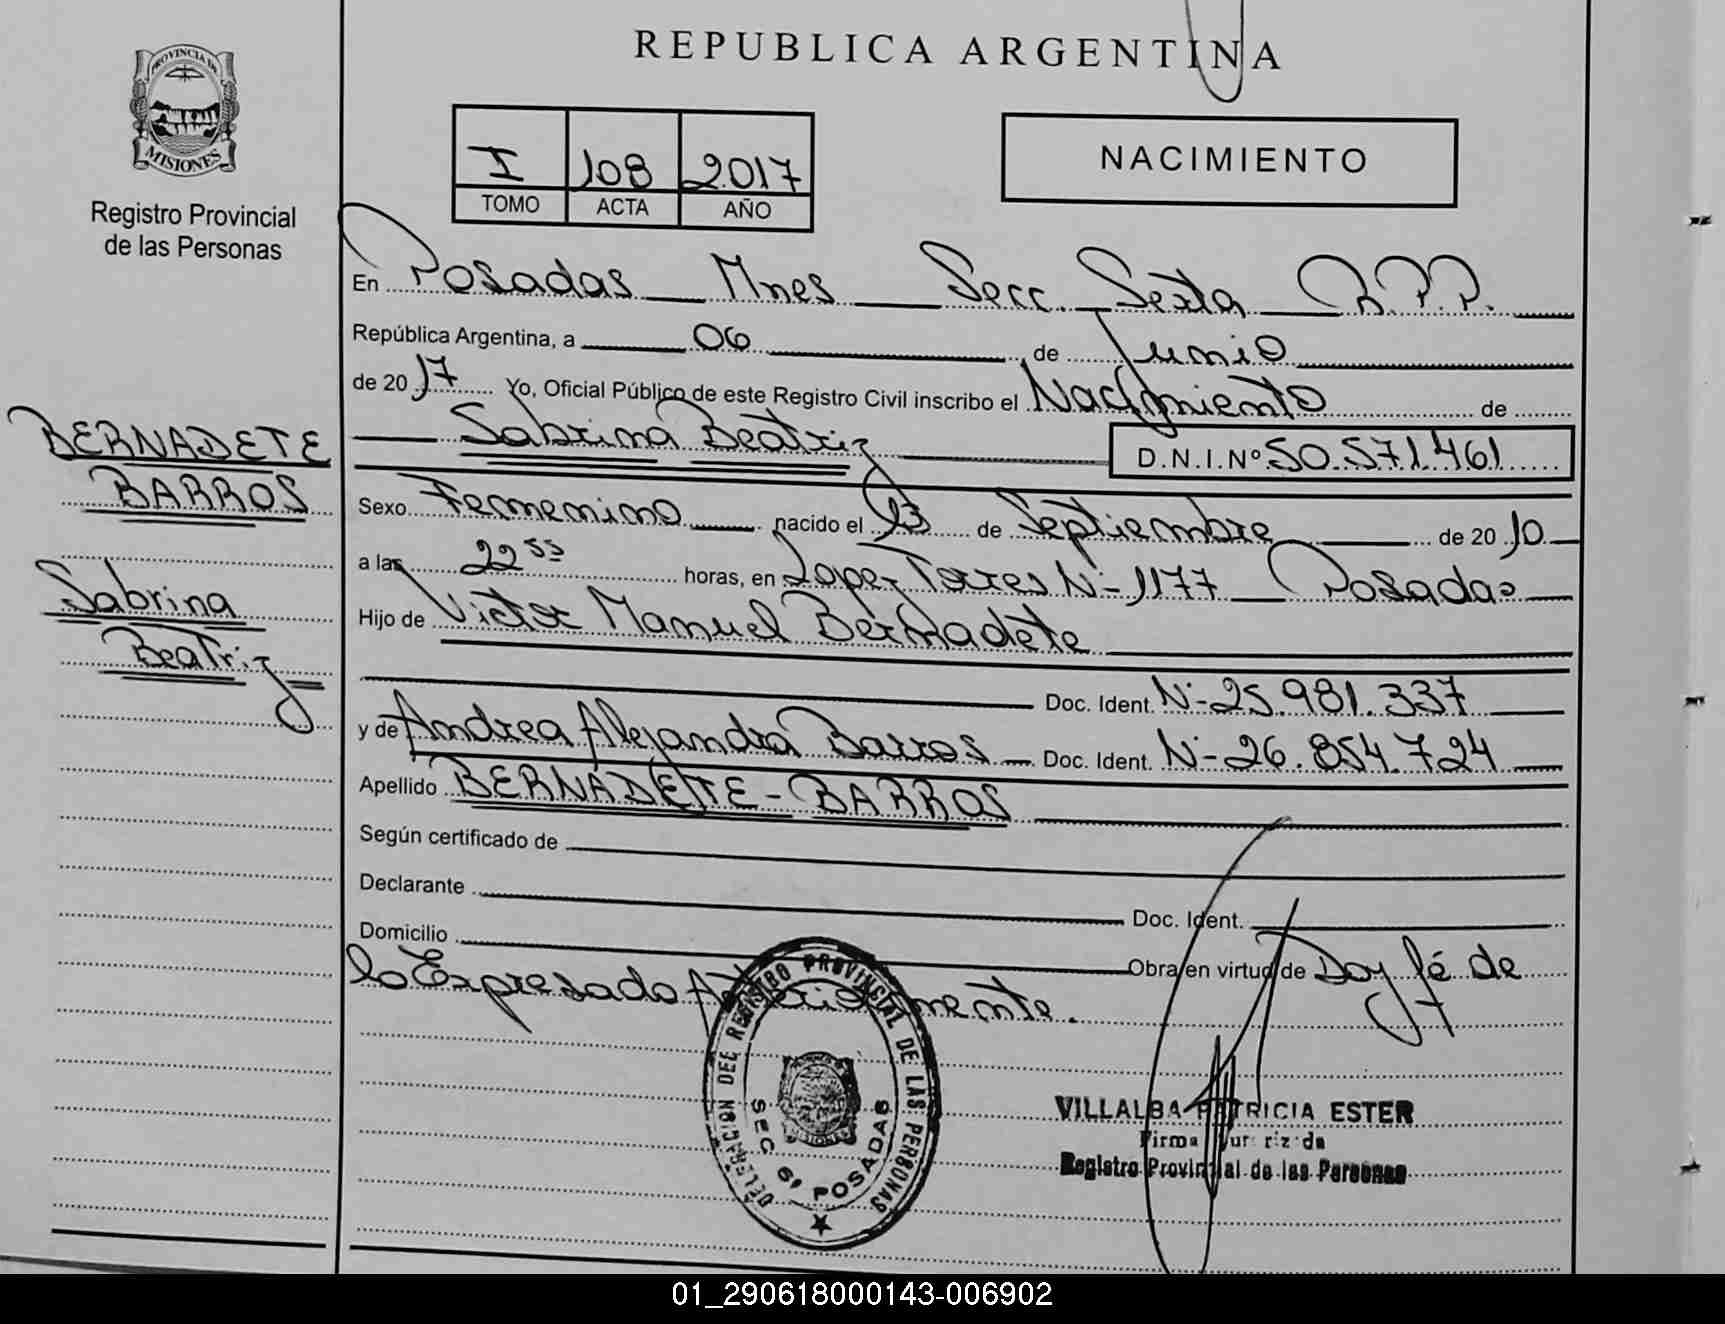 REPUBLICA ARGENTINA
PROVINCIA DE
MISIONES
Registro Provincial
de las Personas
I 108 2017
TOMO ACTA AÑO
NACIMIENTO
En Posadas Mnes Secc. Sexta R.P.P.
República Argentina, a 06 de Junio
de 2017 Yo, Oficial Público de este Registro Civil inscribo el Nacimiento de
Sabrina Beatriz D.N.I.Nº 50.571.461
BERNADETE
BARROS
Sabrina
Beatriz
Sexo Femenino nacido el 13 de Septiembre de 2010
a las 22 55 horas, en Lopez Torres Nº 1177 Posadas
Hijo de Victor Manuel Bernadete
Doc. Ident. Nº 25.981.337
y de Andrea Alejandra Barros Doc. Ident. Nº 26.854.724
Apellido BERNADETE - BARROS
Según certificado de
Declarante Doc. Ident.
Domicilio
Obra en virtud de Doy fé de
lo Expresado Anteriormente.
DELEGACION DEL REGISTRO PROVINCIAL DE LAS PERSONAS
SEC 6º POSADAS
MISIONES
VILLALBA PATRICIA ESTER
Firma Autorizada
Registro Provincial de las Personas
01_290618000143-006902